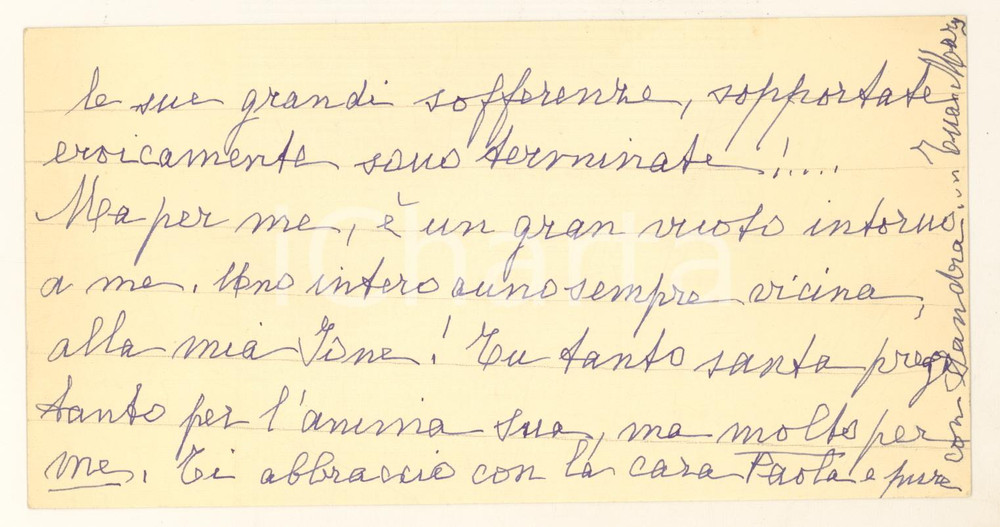 le sue grandi sofferenze, sopportate
eroicamente sono terminate!....
Ma per me, è un gran vuoto intorno
a me. Uno intero anno sempre vicina,
alla mia Isne! Tu tanto santa prega
tanto per l'anima sua, ma molto per
me. Ti abbraccio con la cara Paola e pure
con Sandra...
iCharta